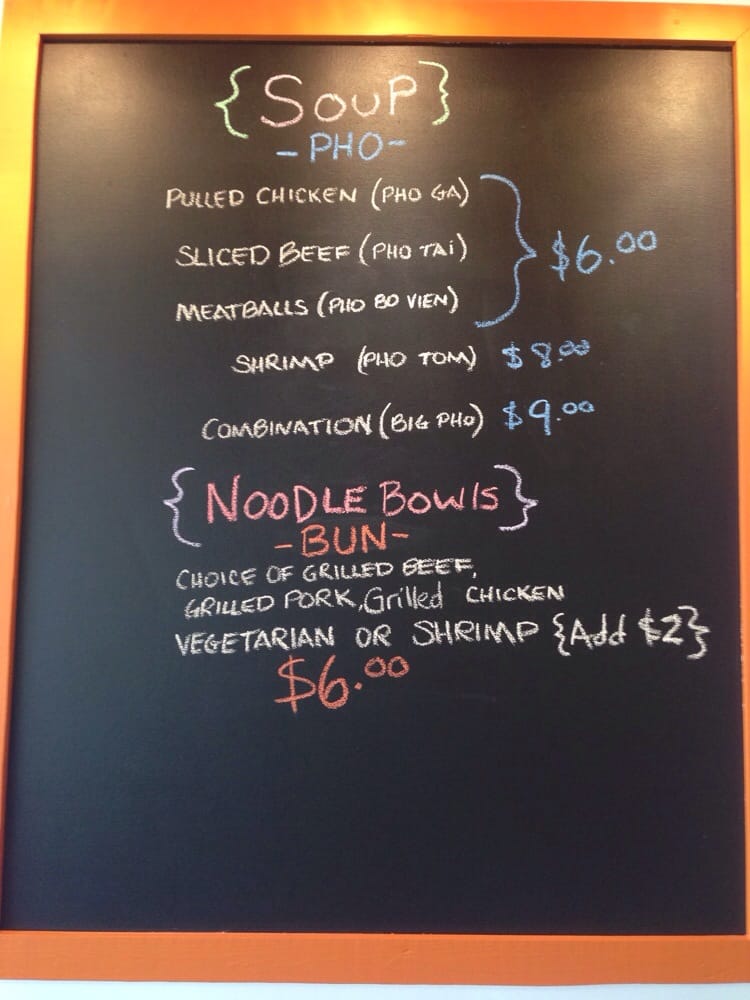 {SOUP}
-PHO-
PULLED CHICKEN (PHO GA)
SLICED BEEF (PHO TAI) $6.00
MEATBALLS (PHO BO VIEN)
SHRIMP (PHO TOM) $8.00
COMBINATION (BIG PHO) $9.00
{NOODLE BOWlS}
-BUN-
CHOICE OF GRILLED BEEF,
GRILLED PORK, Grilled CHICKEN
VEGETARIAN OR SHRIMP {Add $2}
$6.00